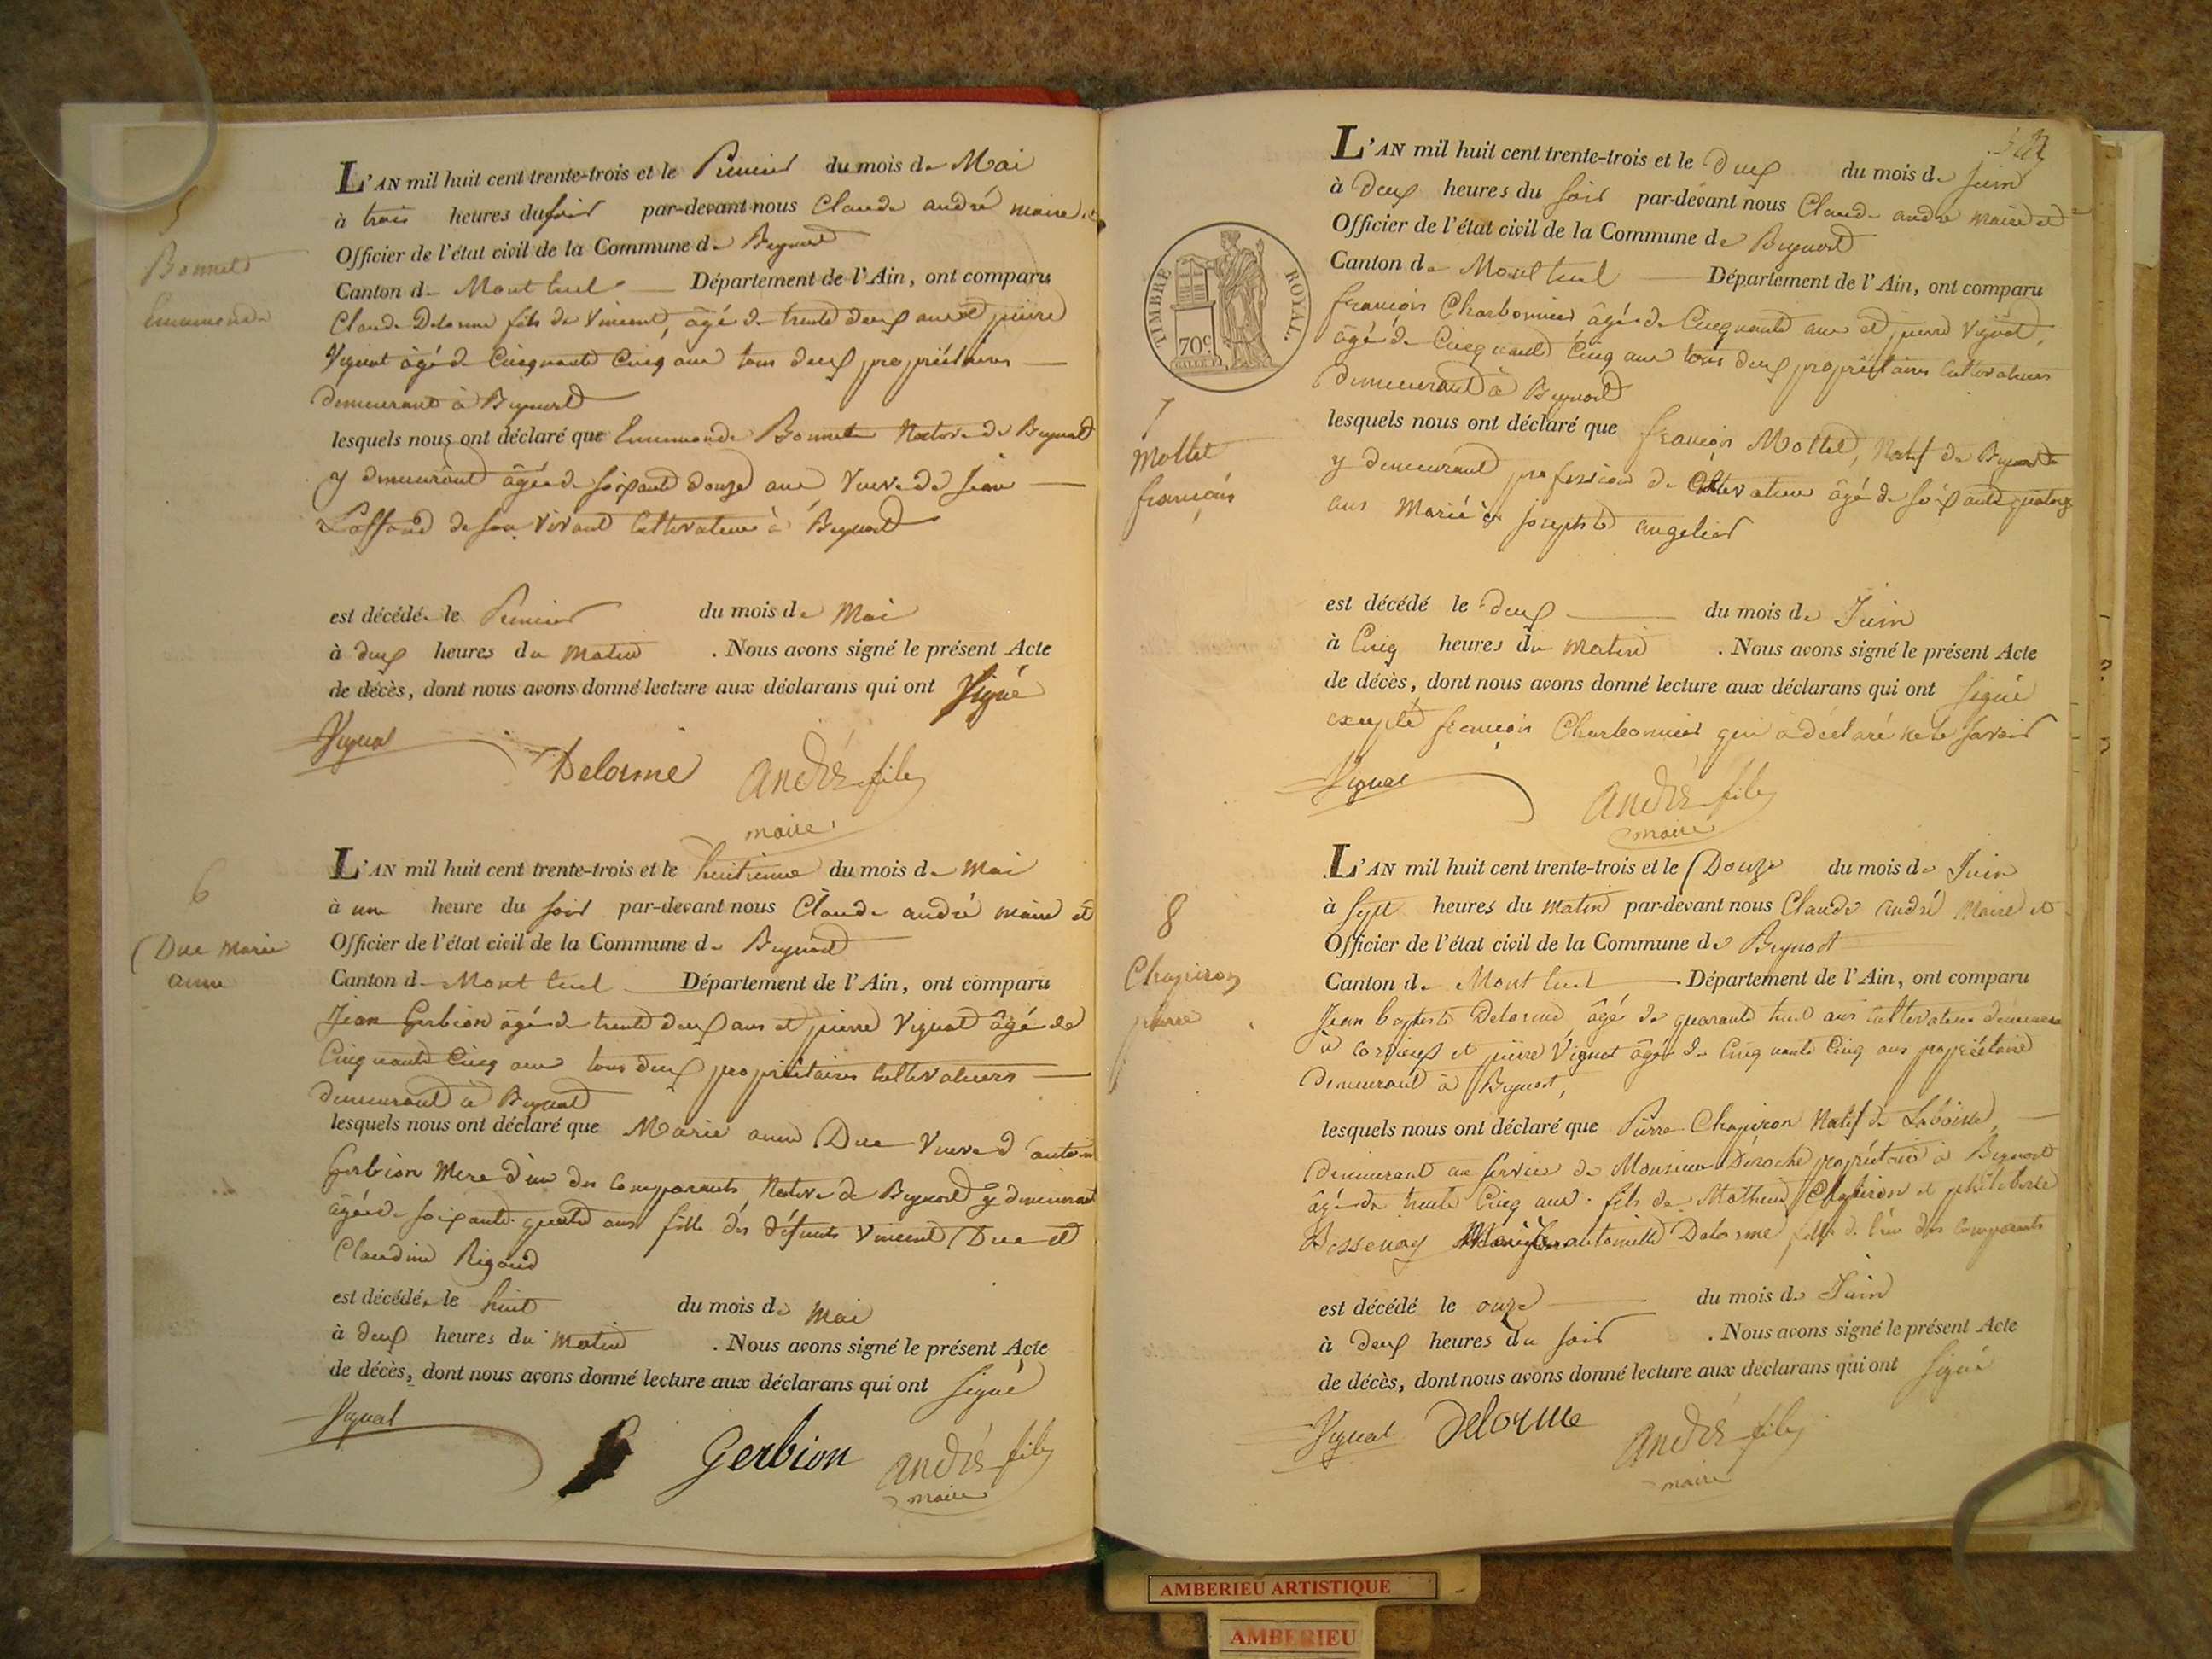 5
Bonnet
Emmonde
L'AN mil huit cent trente-trois et le Premier du mois de Mai
à trois heures du soir par-devant nous Claude andré maire et
Officier de l'état civil de la Commune de Beynost
Canton de Mont luel Département de l'Ain, ont comparu
Claude Delorme fils de Vincent, âgé de trente deux ans et pierre
Vignat âgé de Cinquante Cinq ans tous deux propriétaires
demeurant à Beynost
lesquels nous ont déclaré que Emmonde Bonnet Native de Beynost
y demeurant âgée de soixante douze ans Veuve de Jean
de son vivant Cultivateur à Beynost
est décédée le Premier du mois de Mai
à deux heures du matin . Nous avons signé le présent Acte
de décès, dont nous avons donné lecture aux déclarans qui ont signé
Vignat Delorme André fils
maire
6
Duc Marie
anne
L'AN mil huit cent trente-trois et le huitieme du mois de Mai
à une heure du soir par-devant nous Claude andré maire et
Officier de l'état civil de la Commune de Beynost
Canton de Mont luel Département de l'Ain, ont comparu
Jean Gerbion âgé de trente deux ans et pierre Vignat âgé de
Cinquante Cinq ans tous deux propriétaires Cultivateurs
demeurant à Beynost
lesquels nous ont déclaré que Marie anne Duc Veuve d'antoine
Gerbion Mere d'un des Comparants, Native de Beynost y demeurant
âgée de soixante quatre ans fille des défunts Vincent Duc et
Claudine Rigaud
est décédée le huit du mois de Mai
à deux heures du matin . Nous avons signé le présent Acte
de décès, dont nous avons donné lecture aux déclarans qui ont signé
Vignat Gerbion André fils
maire
TIMBRE ROYAL
70c
7
Mollet
françois
L'AN mil huit cent trente-trois et le deux du mois de Juin
à deux heures du soir par-devant nous Claude andré maire et
Officier de l'état civil de la Commune de Beynost
Canton de Mont luel Département de l'Ain, ont comparu
françois Charbonnier âgé de Cinquante ans et pierre Vignat,
âgé de Cinquante Cinq ans tous deux propriétaires Cultivateurs
demeurant à Beynost
lesquels nous ont déclaré que françois Mollet, Natif de Beynost
y demeurant profession de Cultivateur âgé de soixante quatorze
ans Marié à josephte angelier
est décédé le deux du mois de Juin
à Cinq heures du matin . Nous avons signé le présent Acte
de décès, dont nous avons donné lecture aux déclarans qui ont signé
excepté françois Charbonnier qui a déclaré ne le savoir
Vignat André fils
maire
8
Chapiron
pierre
L'AN mil huit cent trente-trois et le Douze du mois de Juin
à sept heures du matin par-devant nous Claude André Maire et
Officier de l'état civil de la Commune de Beynost
Canton de Mont luel Département de l'Ain, ont comparu
Jean baptiste Delorme âgé de quarante huit ans Cultivateur demeurant
à cordieux et pierre Vignat âgé de Cinquante Cinq ans propriétaire
demeurant à Beynost,
lesquels nous ont déclaré que Pierre Chapiron Natif de Laboisse
demeurant au service de Monsieur Déroche propriétaire à Beynost
âgé de trente Cinq ans fils de Mathieu Chapiron et philiberte
Bossenay antoinette Delorme fille de l'un des comparants
est décédé le onze du mois de Juin
à deux heures du soir . Nous avons signé le présent Acte
de décès, dont nous avons donné lecture aux déclarans qui ont signé
Vignat Delorme André fils
maire
AMBERIEU ARTISTIQUE
AMBERIEU